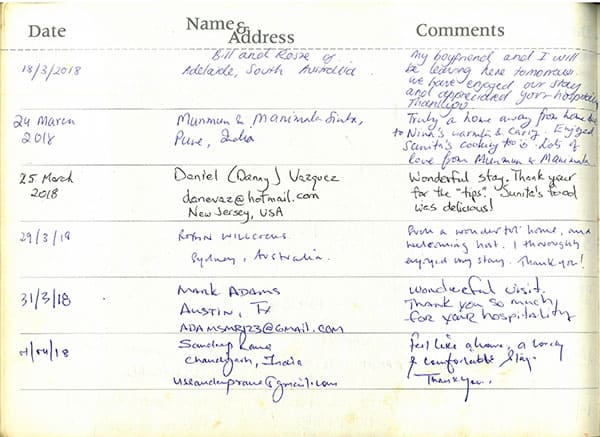 Date Name & Address Comments
18/3/2018
Bill and Rose of
Adelaide, South Australia
My boyfriend and I will
be leaving here tomorrow.
We have enjoyed our stay
and appreciated your hospitality
Thankyou
24 March
2018
Munmun & Manimala
Pune, India
Truly a home away from home
to Nina's warmth & caring. Enjoyed
Sunita's cooking too. Lots of
love from Munmun & Manimala
25 March
2018
Daniel (Danny) Vazquez
danevaz@hotmail.com
New Jersey, USA
Wonderful stay. Thank your
for the "tips". Sunita's food
was delicious!
29/3/18
Robyn
Sydney, Australia.
Such a wonderful home, and
welcoming host. I thoroughly
enjoyed my stay. Thank you!
31/3/18
Mark Adams
Austin, TX
ADAMSMB123@GMAIL.COM
Wonderful visit.
Thank you so much
for your hospitality
/04/18
Sandeep Rana
Chandigarh, India
ussandeeprana@gmail.com
Feel like a home, a lovely
& comfortable stay.
Thankyou.